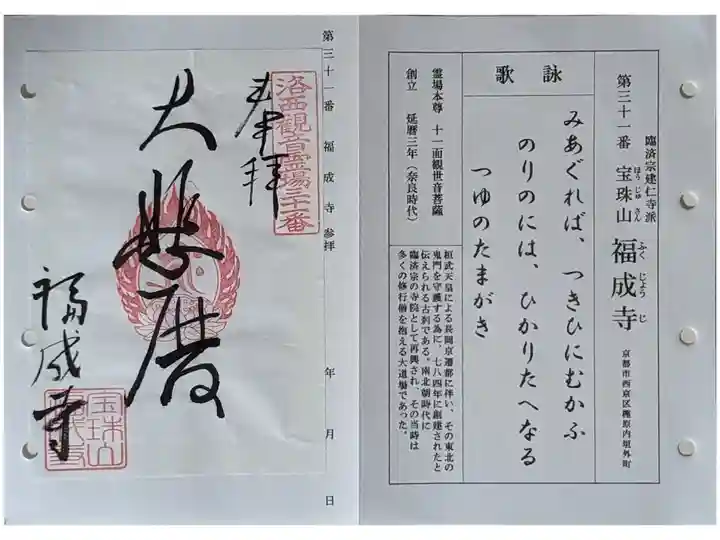 臨済宗建仁寺派
第三十一番 宝珠山 福成寺
ほうじゅさん ふくじょうじ
京都市西京区樫原内垣外町
詠歌
みあぐれば、つきひにむかふ
のりのには、ひかりたへなる
つゆのたまがき
霊場本尊 十一面観世音菩薩
創立 延暦三年（奈良時代）
桓武天皇による長岡京遷都に伴い、その東北の
鬼門を守護する為に、七八四年に創建されたと
伝えられる古刹である。南北朝時代に
臨済宗の寺院として再興され、その当時は
多くの修行僧を抱える大道場であった。
第三十一番 福成寺 参拝 年 月 日
洛西観音霊場三十一番
奉拝
大悲閣
福成寺
宝珠山